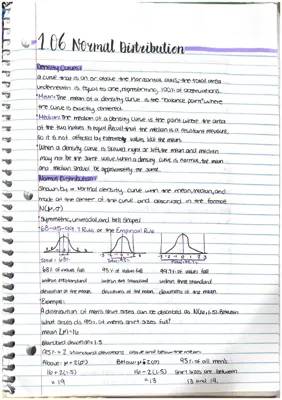 1.06 Normal Distribution
Density Curves:
a curve that is on or above the horizontal axis, the total area
underneath is equal to one, representing 100% of observations.
*Mean: The mean of a density curve is the "balance point" where
the curve is exactly centered.
*Median: The median of a density curve is the point where the area
of the two halves is equal. Recall that the median is a resistant measure,
so it is not affected by extreme values, like the mean.
*When a density curve is skewed right or left, the mean and median
may not be the same value. When a density curve is normal, the mean
and median should be approximately the same.
Normal Distribution:
Shown by a normal density curve with the mean, median, and
mode at the center of the curve and described in the format
N(μ,σ)
*Symmetric, unimodal, and bell shaped
*68-95-99.7 Rule or the Empirical Rule
Total: 68%
68% of values fall 95% of values fall 99.7% of values fall
within one standard within two standard within three standard
deviation of the mean. deviations of the mean. deviations of the mean.
*Example:
A distribution of men's shirt sizes can be described as N(16,1.5). Between
what sizes do 95% of men's shirt sizes fall?
mean (μ)=16
standard deviation=1.5
95% = 2 standard deviations above and below the mean
Above: μ+2(σ) Below: μ-2(σ) 95% of all men's
16+2(1.5) 16-2(1.5) shirt sizes are between
=19 =13 13 and 19.